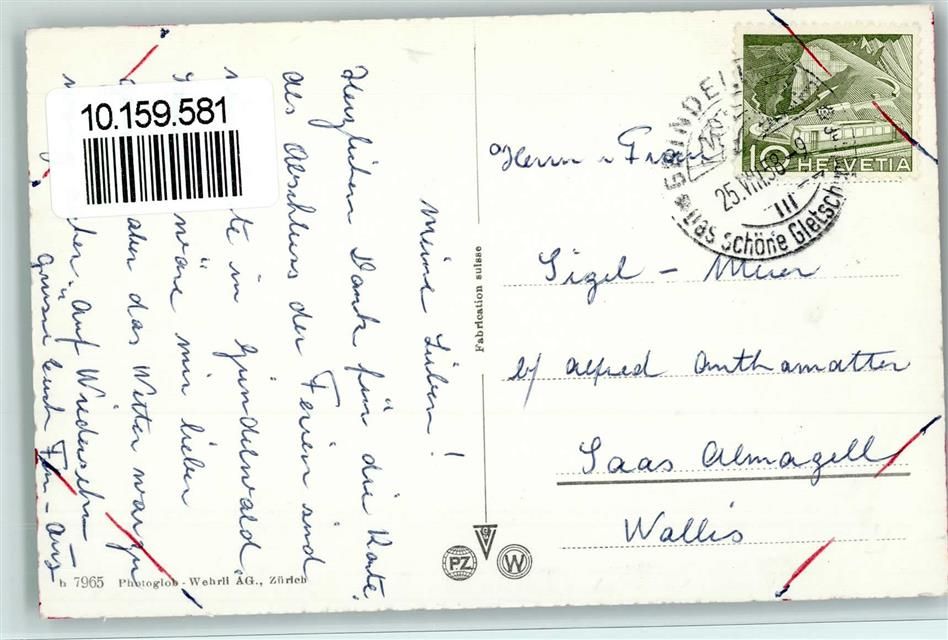 Meine Lieben!
Herzlichen Dank für die Karte.
Als Abschluss der Ferien sind
in Gindelwald.
wäre mir lieber
aber das Wetter war zu
Auf Wiedersehn
Grüsse Euch
10.159.581
h 7965 Photoglob-Wehrli AG., Zürich
Fabrication suisse
PZ
W
10 HELVETIA
GRINDEL
25.VIII.58
III
Das schöne Gletsch
Herrn u Frau
Sigel - Meier
b/ Alfred Anthamatten
Saas Almagell
Wallis